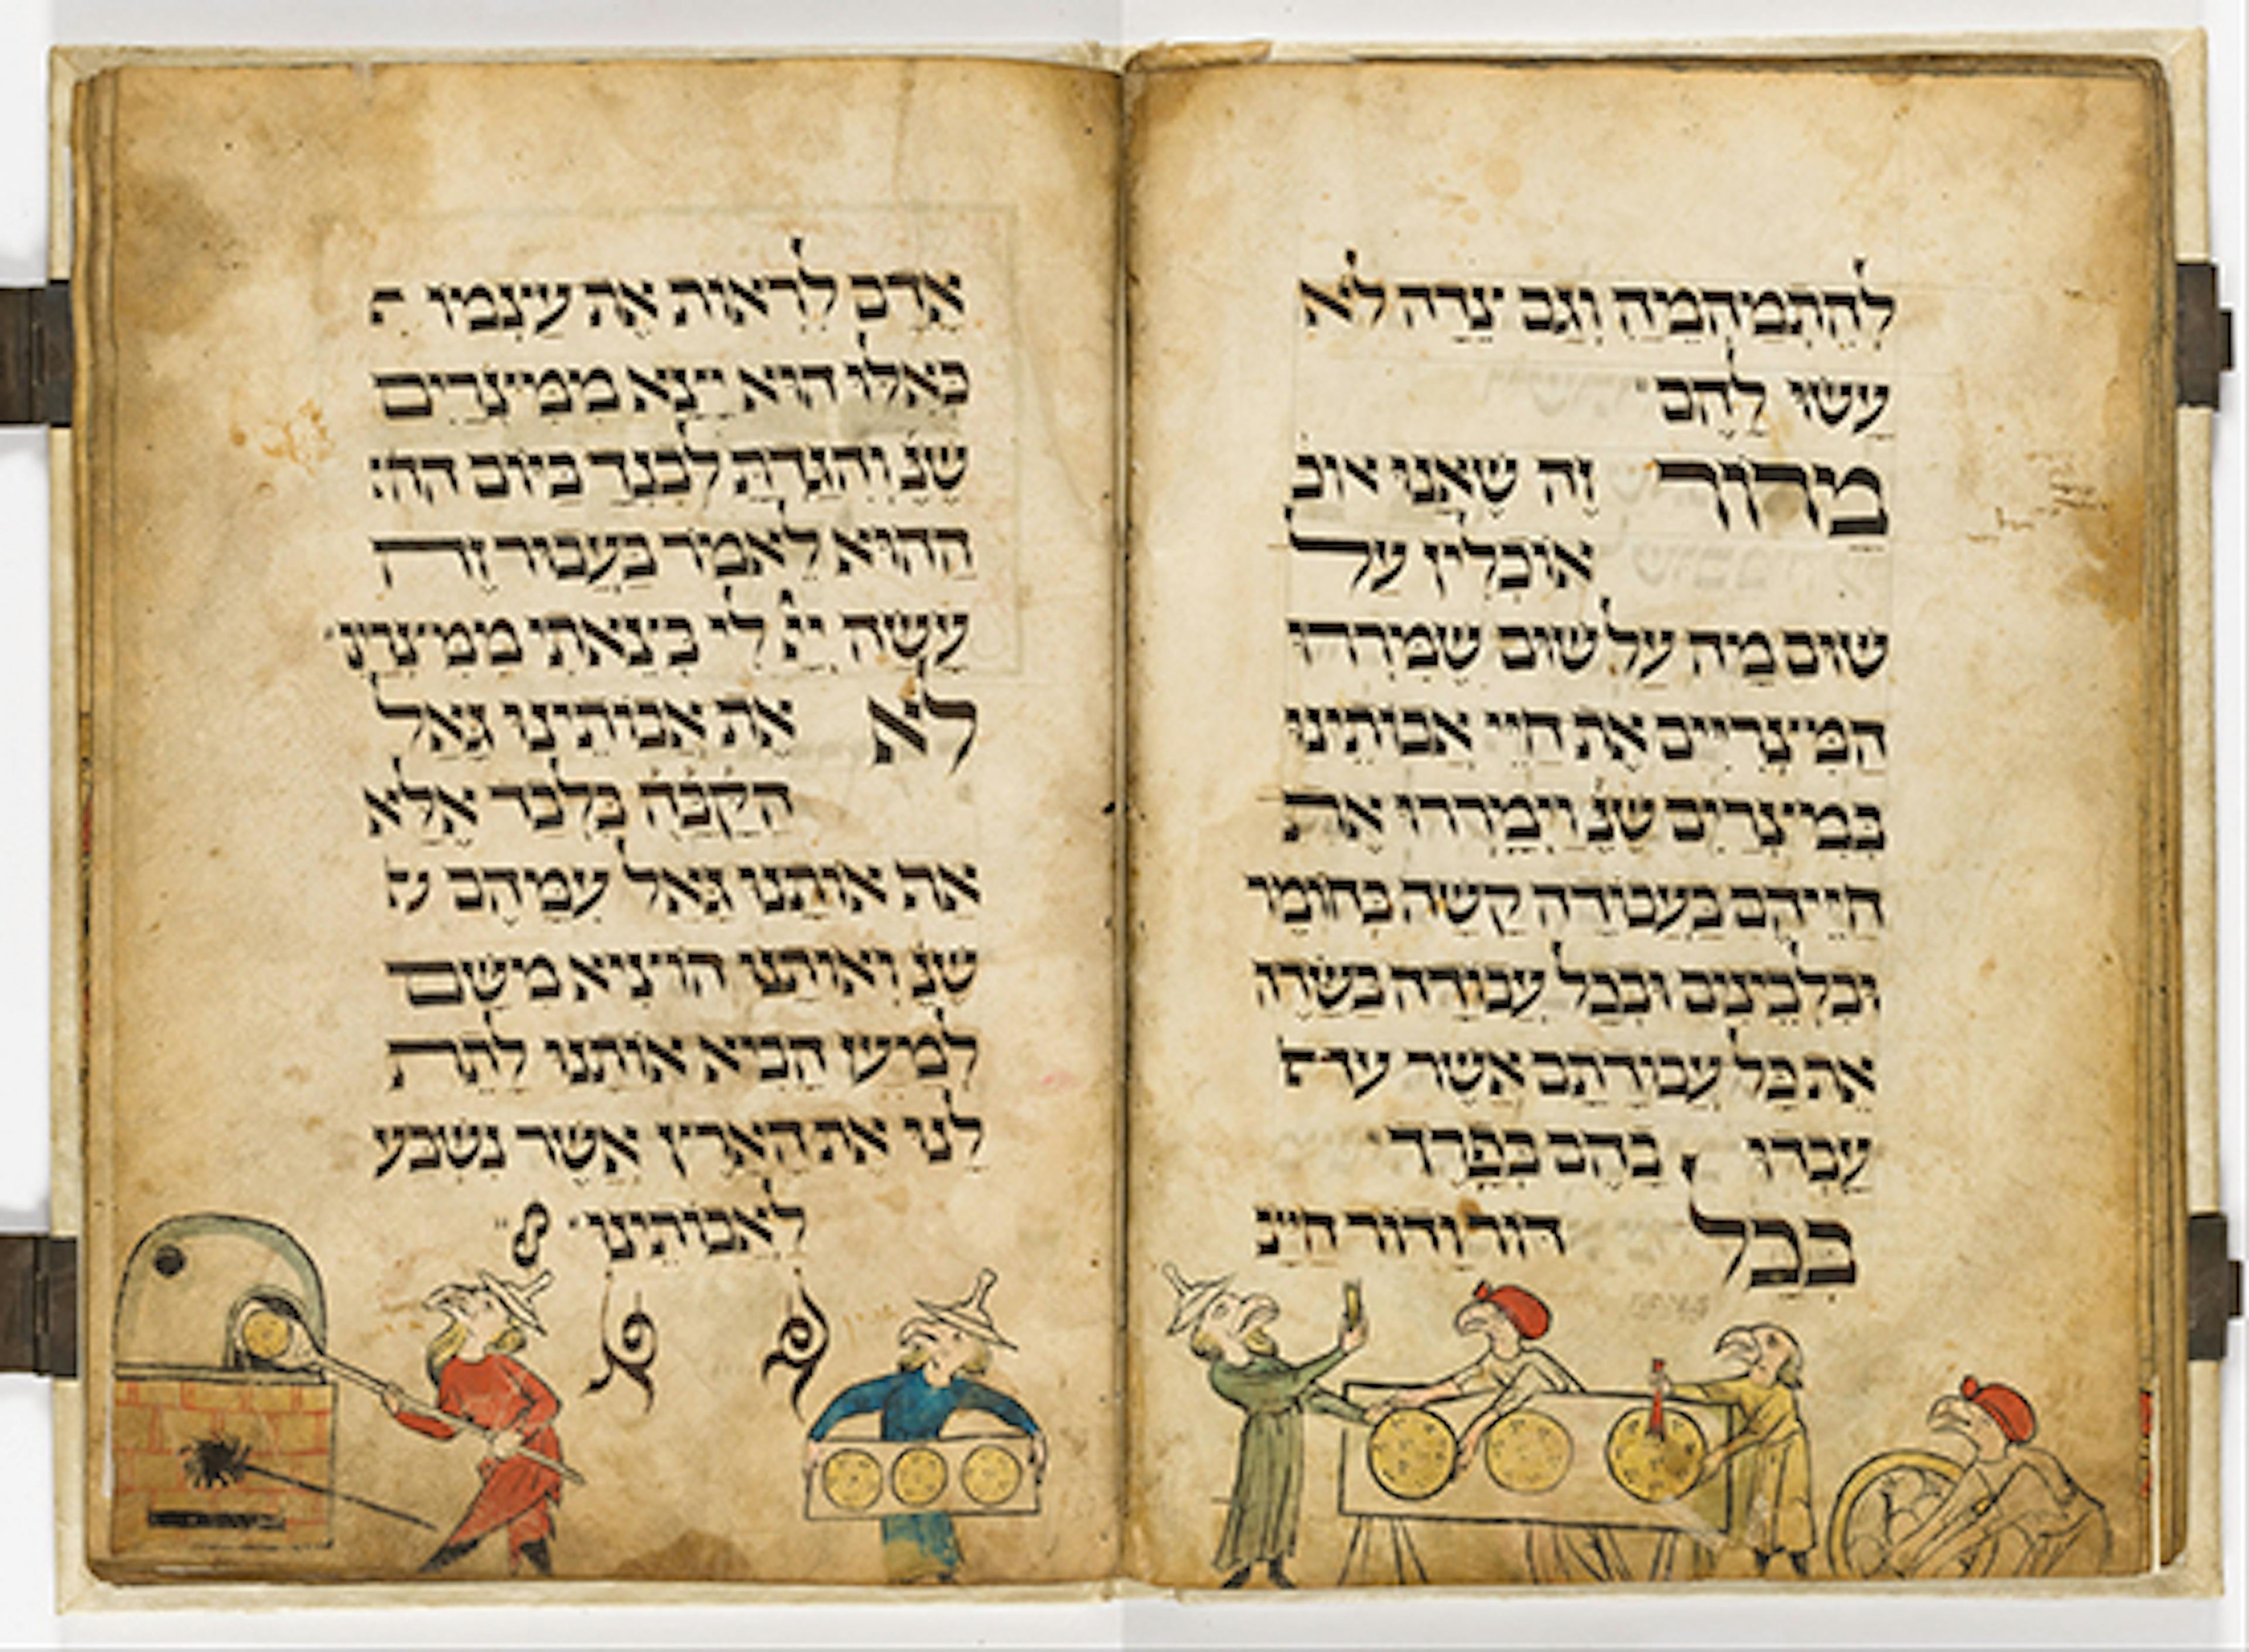 להתמהמיה וגם צדה לא
עשו להם
מרור זה שאנו אוכ
אוכלין על
שום מה על שום שמררו
המצריים את חיי אבותינו
במצרים שנ וימררו את
חייהם בעבודה קשה בחומר
ובלבינים ובכל עבודה בשדה
את כל עבודתם אשר
עבדו בהם בפרך
בכל דור ודור חייב
אדם לראות את עצמו
כאלו הוא יצא ממצרים
שנ והגדת לבנך ביום הה
ההוא לאמר בעבור זה
עשה ייי לי בצאתי ממצרי
לא את אבותינו גאל
הקבה בלבד אלא
את אותנו גאל עמהם
שנ ואותנו הוציא משם
למען הביא אותנו לתת
לנו את הארץ אשר נשבע
לאבותינו